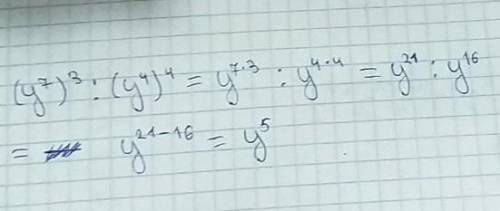 (y⁷)³ : (y⁴)⁴ = y⁷·³ : y⁴·⁴ = y²¹ : y¹⁶
= y²¹⁻¹⁶ = y⁵